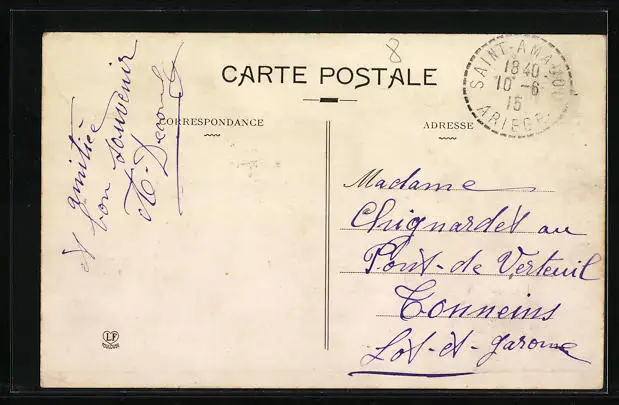 8
CARTE POSTALE
CORRESPONDANCE
ADRESSE
SAINT-AMADOU
18 40
10 -6
15
ARIEGE
amitiée
et bon souvenir
Madame
Chignardet au
Pont-de Verteuil
Tonneins
Lot-et-garonne
LF